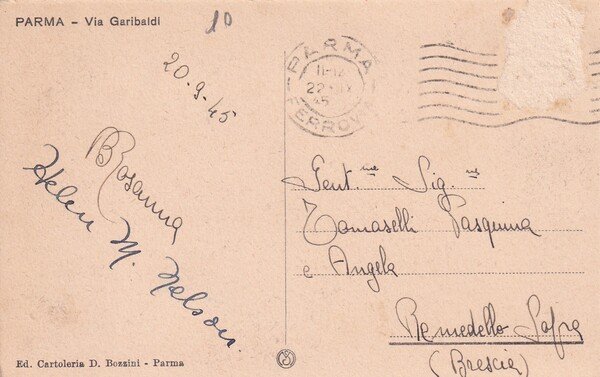 PARMA - Via Garibaldi
10
20-9-45
Rosanna
Helen M. Nelson.
PARMA
11-12
22 IX
45
FERROV
Gent.me Sig.ne
Tomaselli Pasquina
e Angela
Remedello Sopra
(Brescia)
Ed. Cartoleria D. Bozzini - Parma